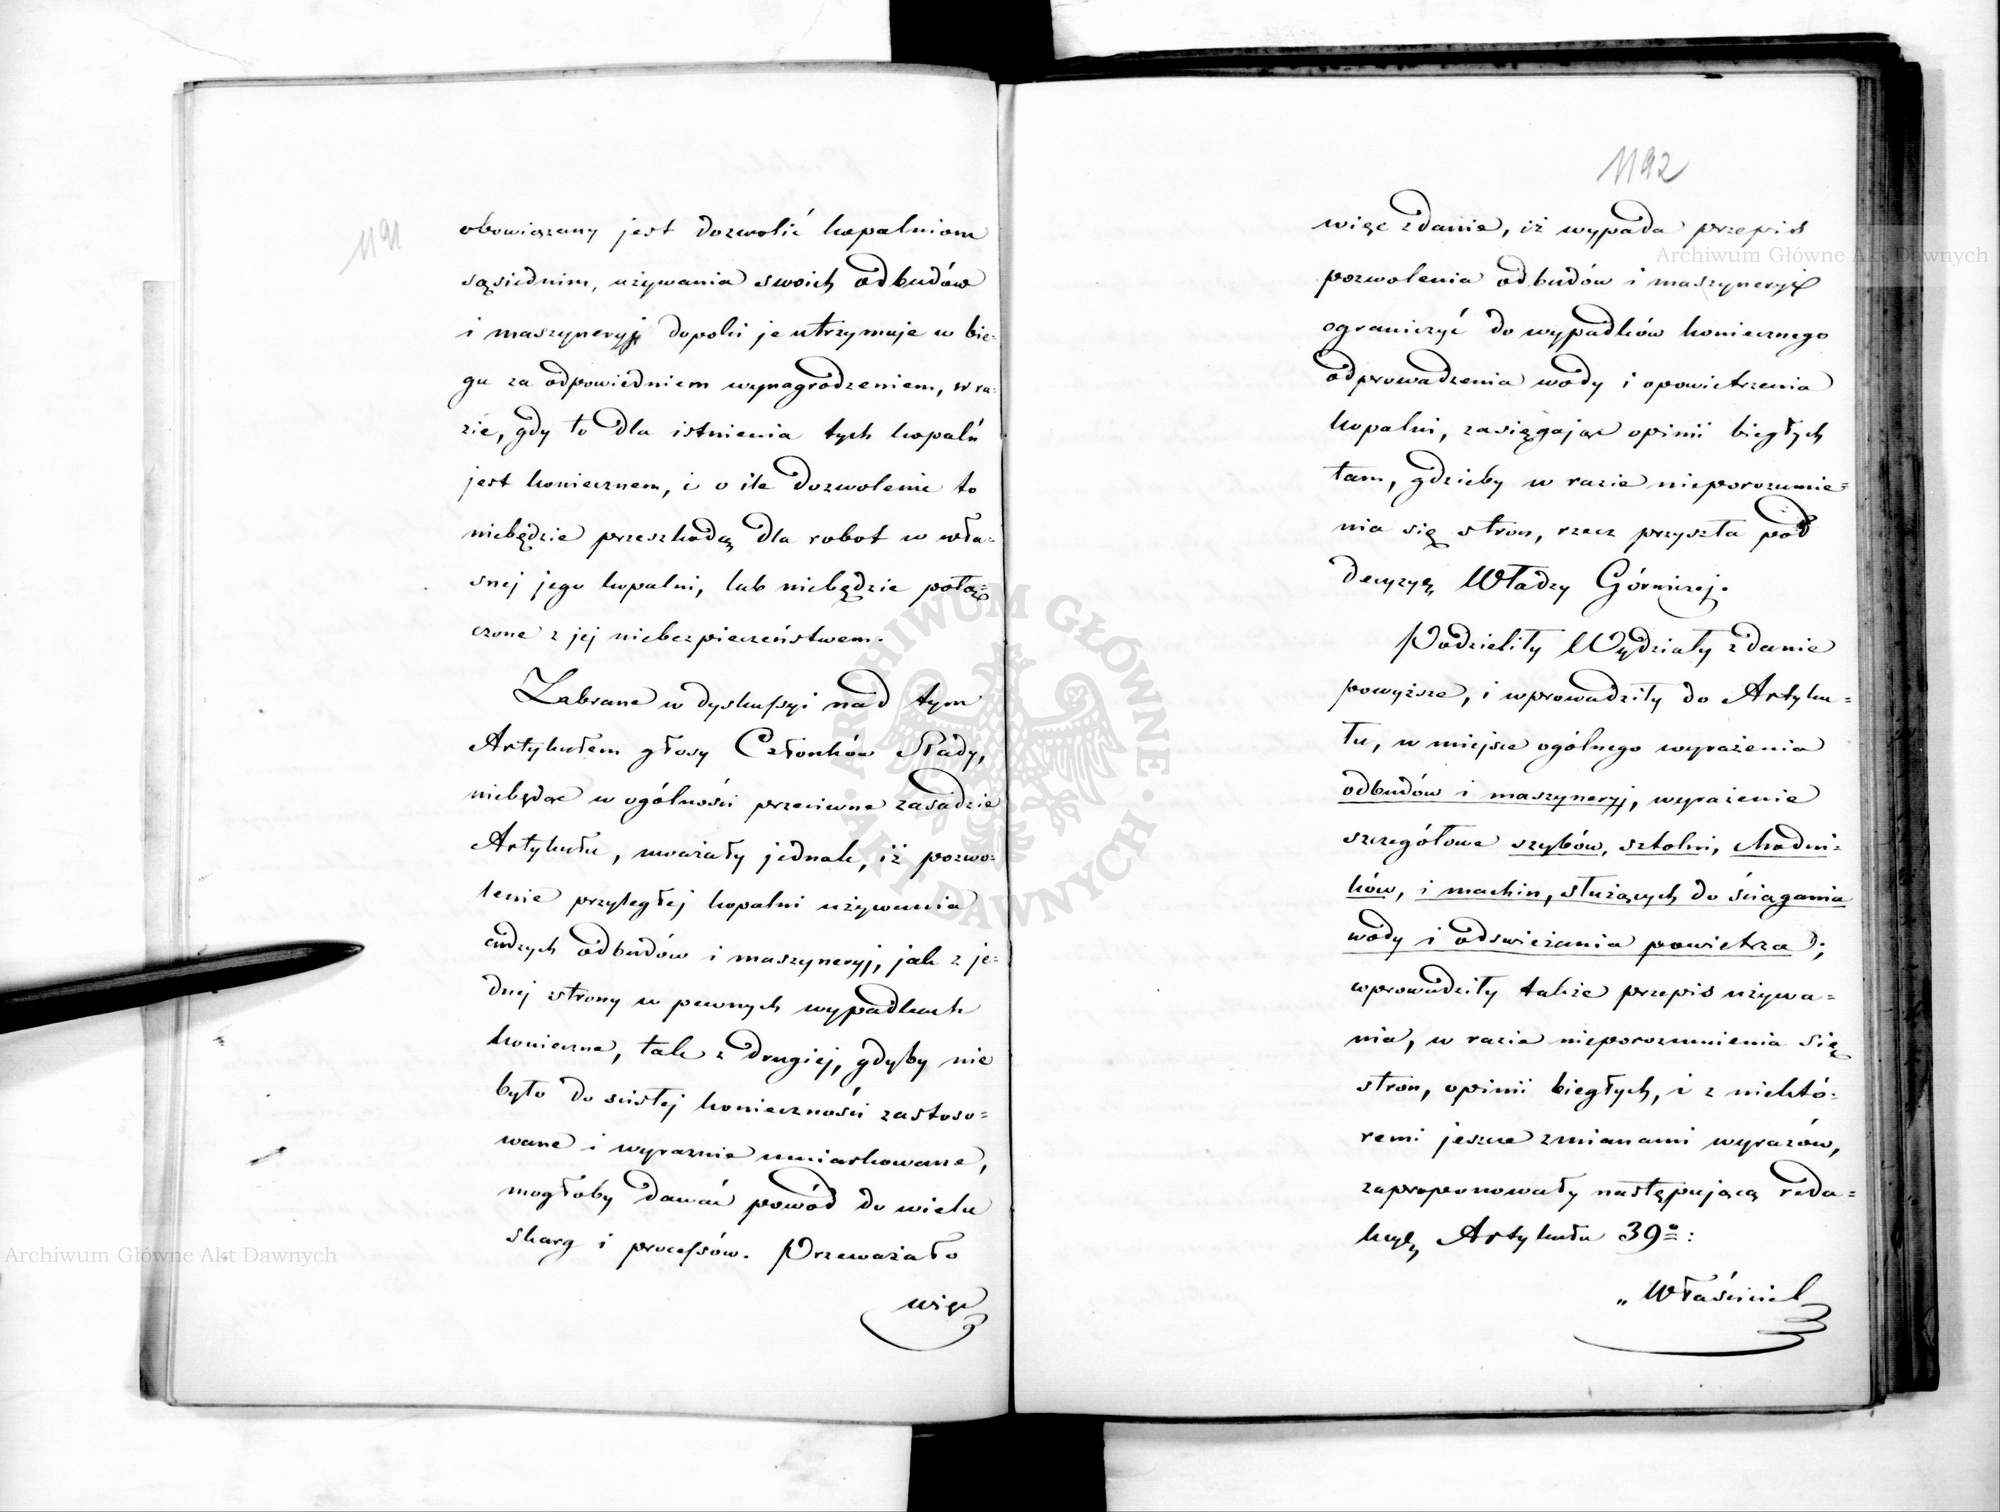 1191
obowiązany jest dozwolić kopalniom
sąsiednim, używania swoich odbudów
i maszyneryj dopóki je utrzymuje w bie-
gu za odpowiedniem wynagrodzeniem, w ra-
zie, gdy to dla istnienia tych kopalń
jest koniecznem, i o ile dozwolenie to
niebędzie przeszkodą dla robot w wła-
snej jego kopalni, lub niebędzie połą-
czone z jej niebezpieczeństwem.
Zebrane w dyskussyi nad tym
Artykułem głosy Członków Rady,
niebędąc w ogólności przeciwne zasadzie
Artykułu, uważały jednak, iż pozwo-
lenie przyległej kopalni używania
cudzych odbudów i maszyneryj, jak z je-
dnej strony w pewnych wypadkach
konieczne, tak z drugiej, gdyby nie
było do ścisłej konieczności zastoso-
wane i wyraźnie umiarkowane,
mogłoby dawać powód do wielu
skarg i processów. Przeważało
więc
1192
więc zdanie, iż wypada przepis
pozwolenia odbudów i maszyneryj
ograniczyć do wypadków koniecznego
odprowadzenia wody i opowietrzenia
kopalni, zasięgając opinii biegłych
tam, gdzieby w razie nieporozumie-
nia się stron, rzecz przyszła pod
decyzyę Władzy Górniczej.
Podzieliły Wydziały zdanie
powyższe, i wprowadziły do Artyku-
łu, w miejsce ogólnego wyrażenia
odbudów i maszyneryj, wyrażenie
szczegółowe szybów, sztolni, chodni-
ków, i machin, służących do ściągania
wody i odświeżania powietrza;
wprowadziły także przepis używa-
nia, w razie nieporozumienia się
stron, opinii biegłych, i z niektó-
remi jeszcze zmianami wyrazów,
zaproponowały następującą reda-
kcyę Artykułu 39º:
„Właściciel
Archiwum Główne Akt Dawnych
Archiwum Główne Akt Dawnych
ARCHIWUM GŁÓWNE AKT DAWNYCH